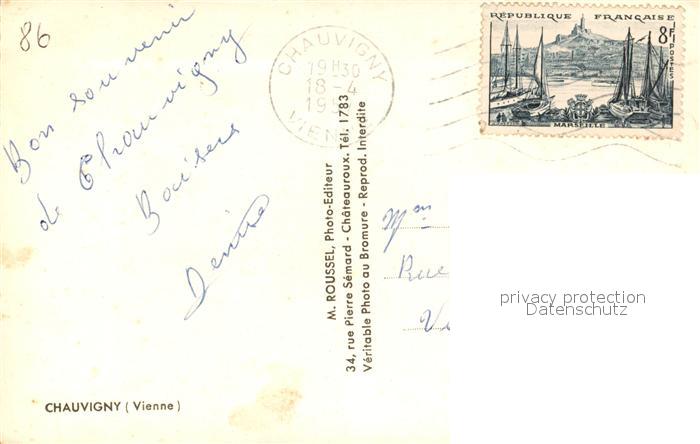 86
Bon souvenir
de Chauvigny
Baisers
Denise
CHAUVIGNY (Vienne)
M. ROUSSEL, Photo-Editeur
34, rue Pierre Sémard - Châteauroux. Tél. 1783
Véritable Photo au Bromure - Reprod. Interdite
CHAUVIGNY
19H30
18-4
VIENNE
RÉPUBLIQUE FRANÇAISE
8F
POSTES
MARSEILLE
Mme
Rue
privacy protection
Datenschutz